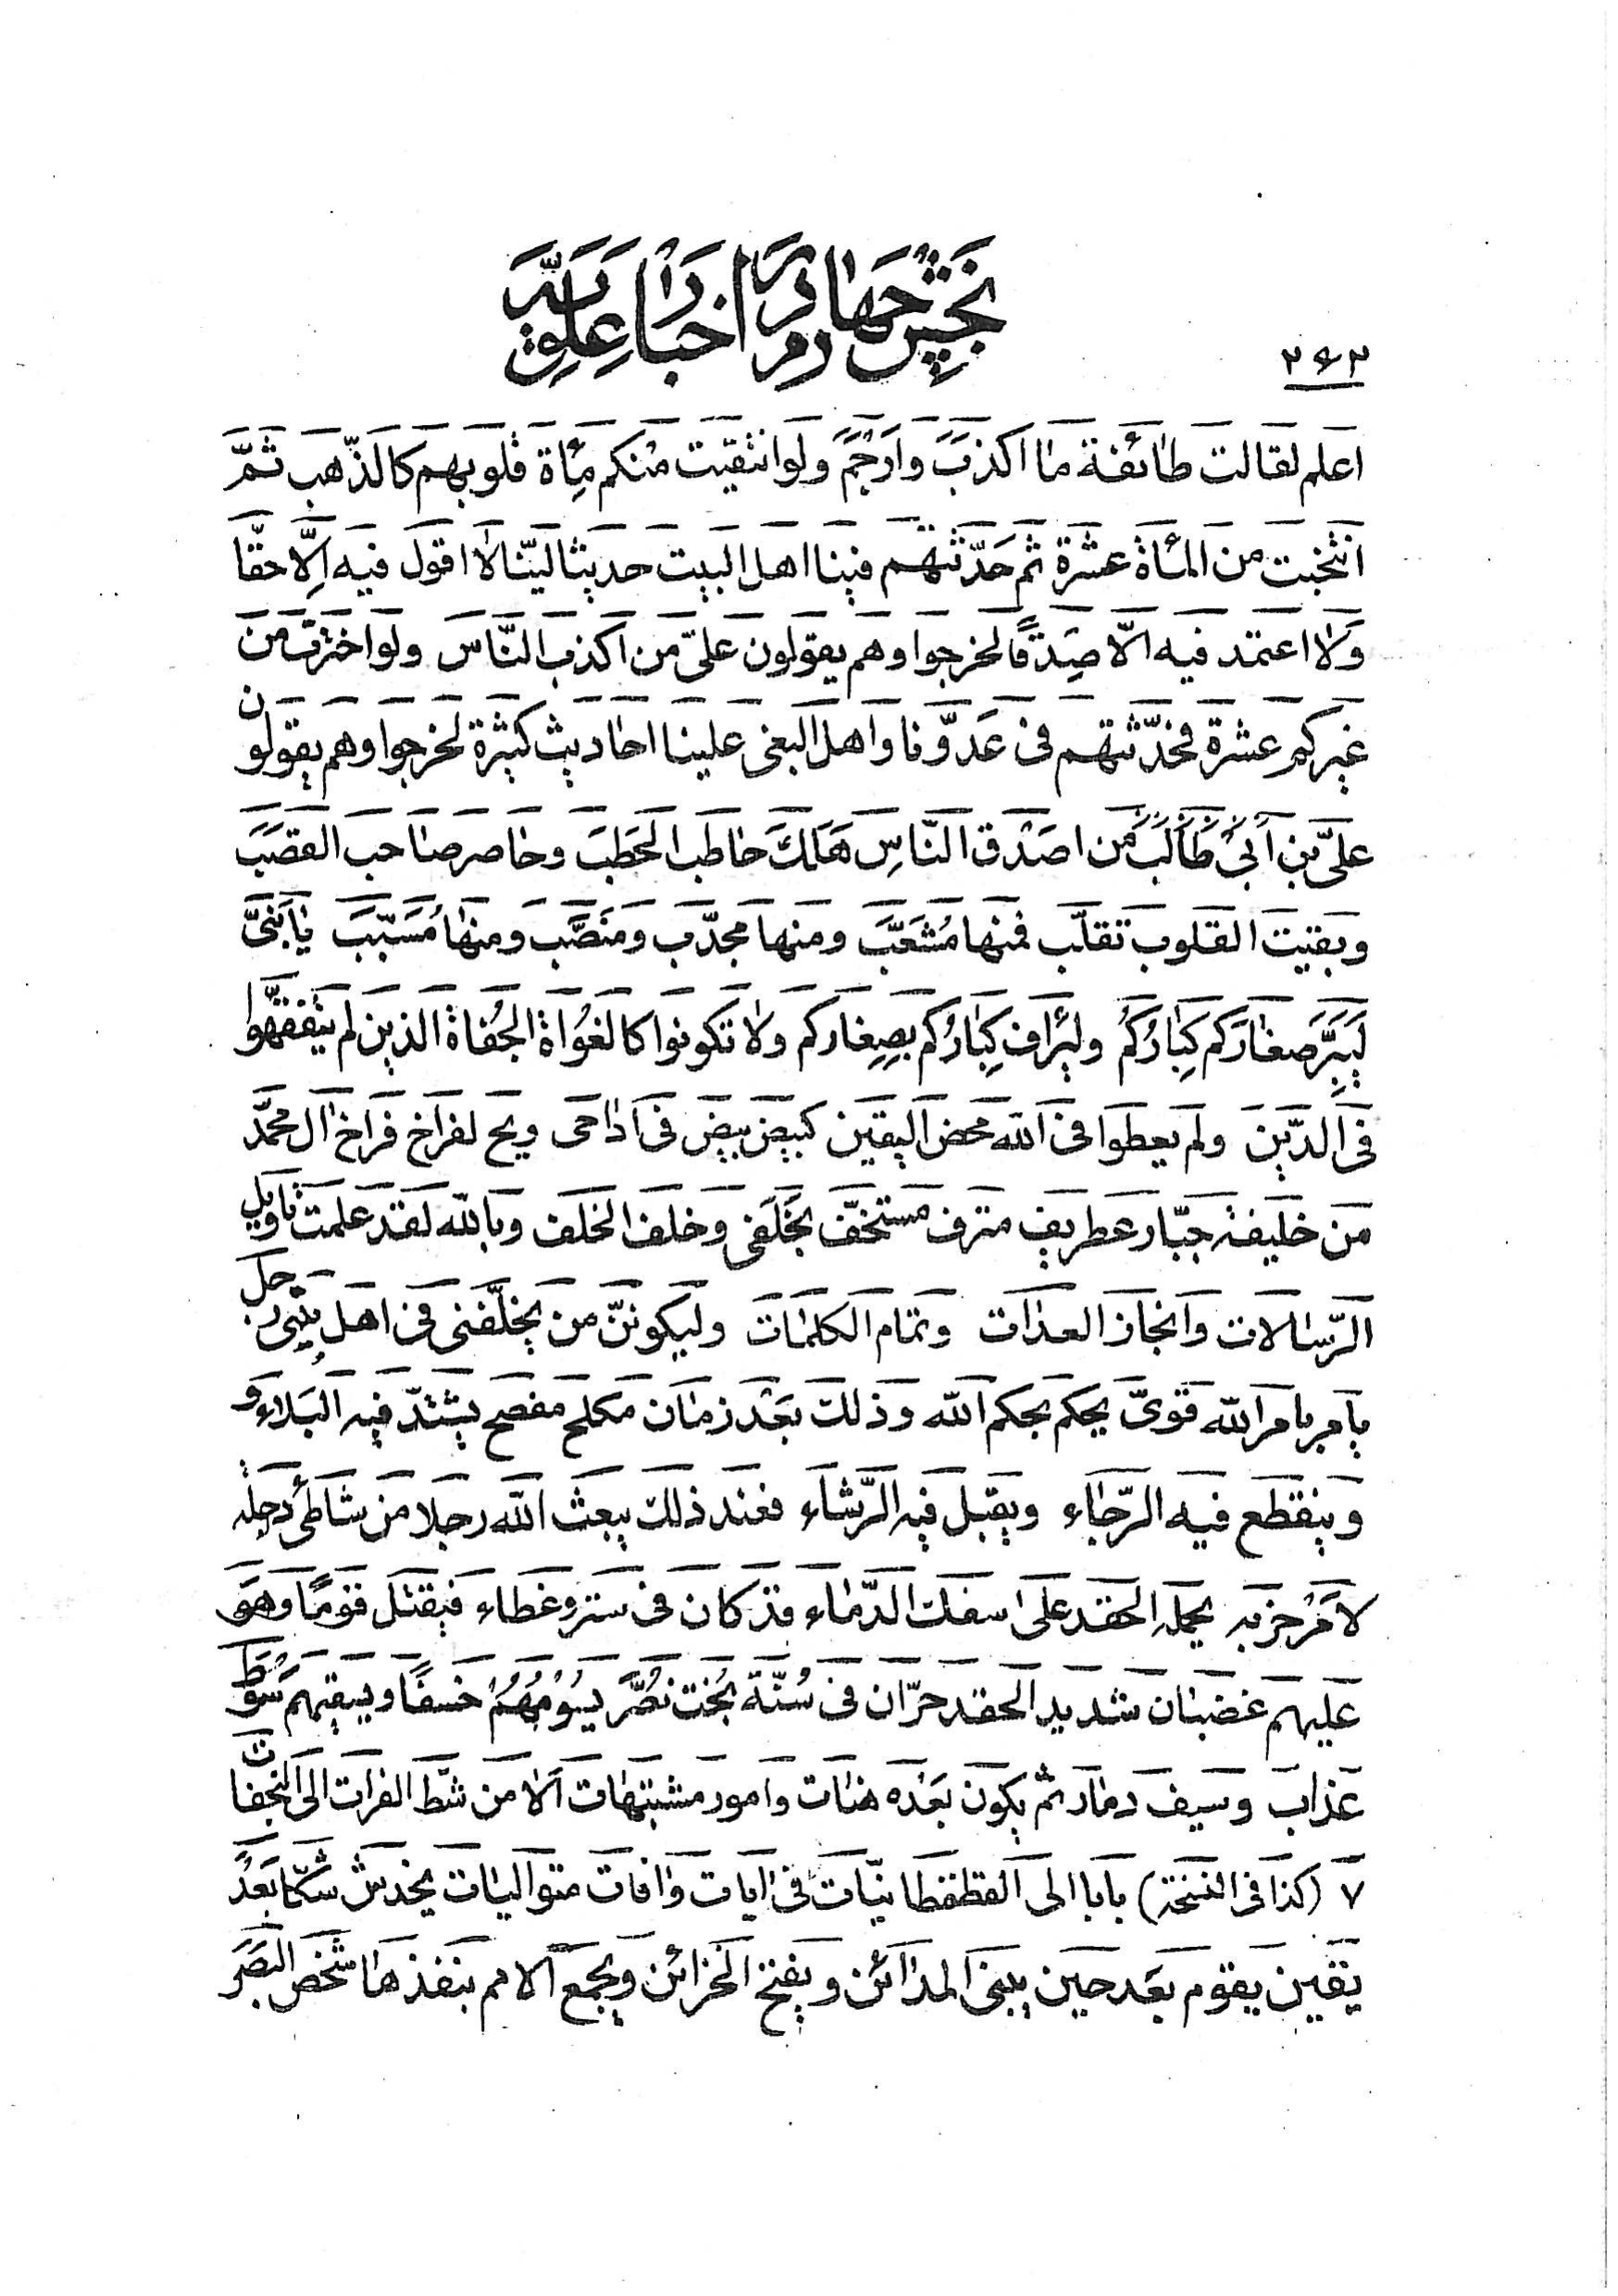 بخش چهارم در اخبار علویه
۲۶۲
اعلم لقالت طائفة ما اکذب وارجم ولو انتقیت منکم مأة قلوبهم کالذهب ثمّ
انتخبت من المأة عشرة ثم حدّثتهم فینا اهل البیت حدیثا لیّنا لا اقول فیه الّا حقّا
ولا اعتمد فیه الّا صدقًا لخرجوا وهم یقولون علیّ من اکذب النّاس ولو اخترت من
غیرکم عشرة فحدّثتهم فی عدوّنا واهل البغی علینا احادیث کثیرة لخرجوا وهم یقولون
علیّ بن ابی طالب من اصدق النّاس هلك حاطب الحطب وحاصر صاحب القصب
وبقیت القلوب تقلّب فمنها مشعّب ومنها مجدّب ومنصّب ومنها مسیّب یا بنیّ
لیبرّ صغارکم کبارکم ولیرأف کبارکم بصغارکم ولا تکونوا کالغواة الجفاة الذین لم یتفقّهوا
فی الدّین ولم یعطوا فی الله محض الیقین کبیض بیض فی اداحی ویح لفراخ فراخ ال محمّد
من خلیفة جبّار عطریف مترف مستخفّ بخلفی وخلف الخلف وبالله لقد علمت تاویل
الرّسالات وانجاز العدات وتمام الکلمات ولیکوننّ من یخلّفنی فی اهل بیتی رجل
یامر بامر الله قویّ یحکم بحکم الله وذلك بعد زمان مکلح مفصح یشتدّ فیه البلاء و
وینقطع فیه الرّجاء ویقبل فیه الرّشاء فعند ذلك یبعث الله رجلا من شاطئ دجله
لامر حزبه یحمله الحقد علی سفك الدّماء قد کان فی ستر وغطاء فیقتل قومًا وهو
علیهم غضبان شدید الحقد حرّان فی سنّة بخت نصّر یسومهم خسفًا ویسقیهم سوط
عذاب وسیف دمار ثم یکون بعده هنات وامور مشتبهات الا من شطّ الفرات الی النّجفات
۷ (کذا فی النسخة) بابا الی القطقطانیّات فی ایات وافات متوالیات یحدثن شکّا بعد
یقین یقوم بعد حین یبنی المدائن ویفتح الخزائن ویجمع الامم ینفذها شخص البصر